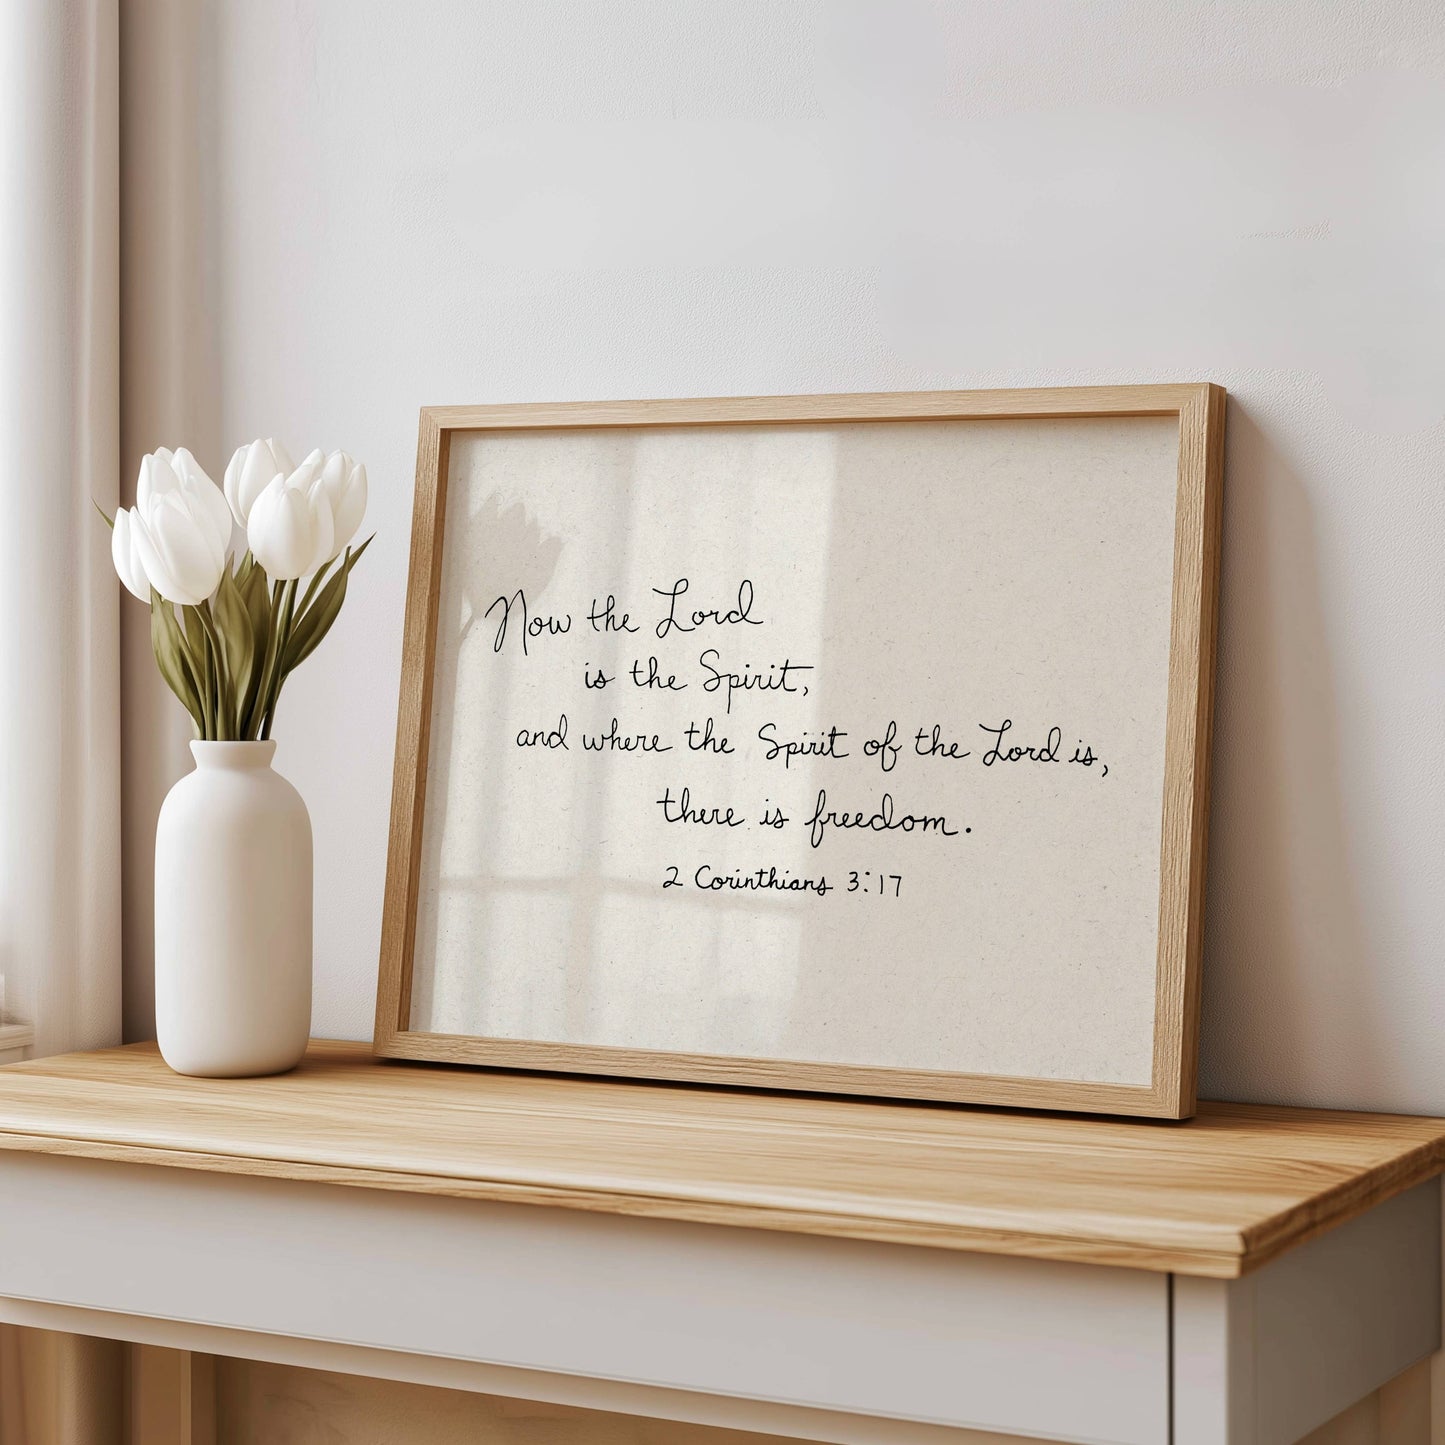 Now the Lord
is the Spirit,
and where the Spirit of the Lord is,
there is freedom.
2 Corinthians 3:17